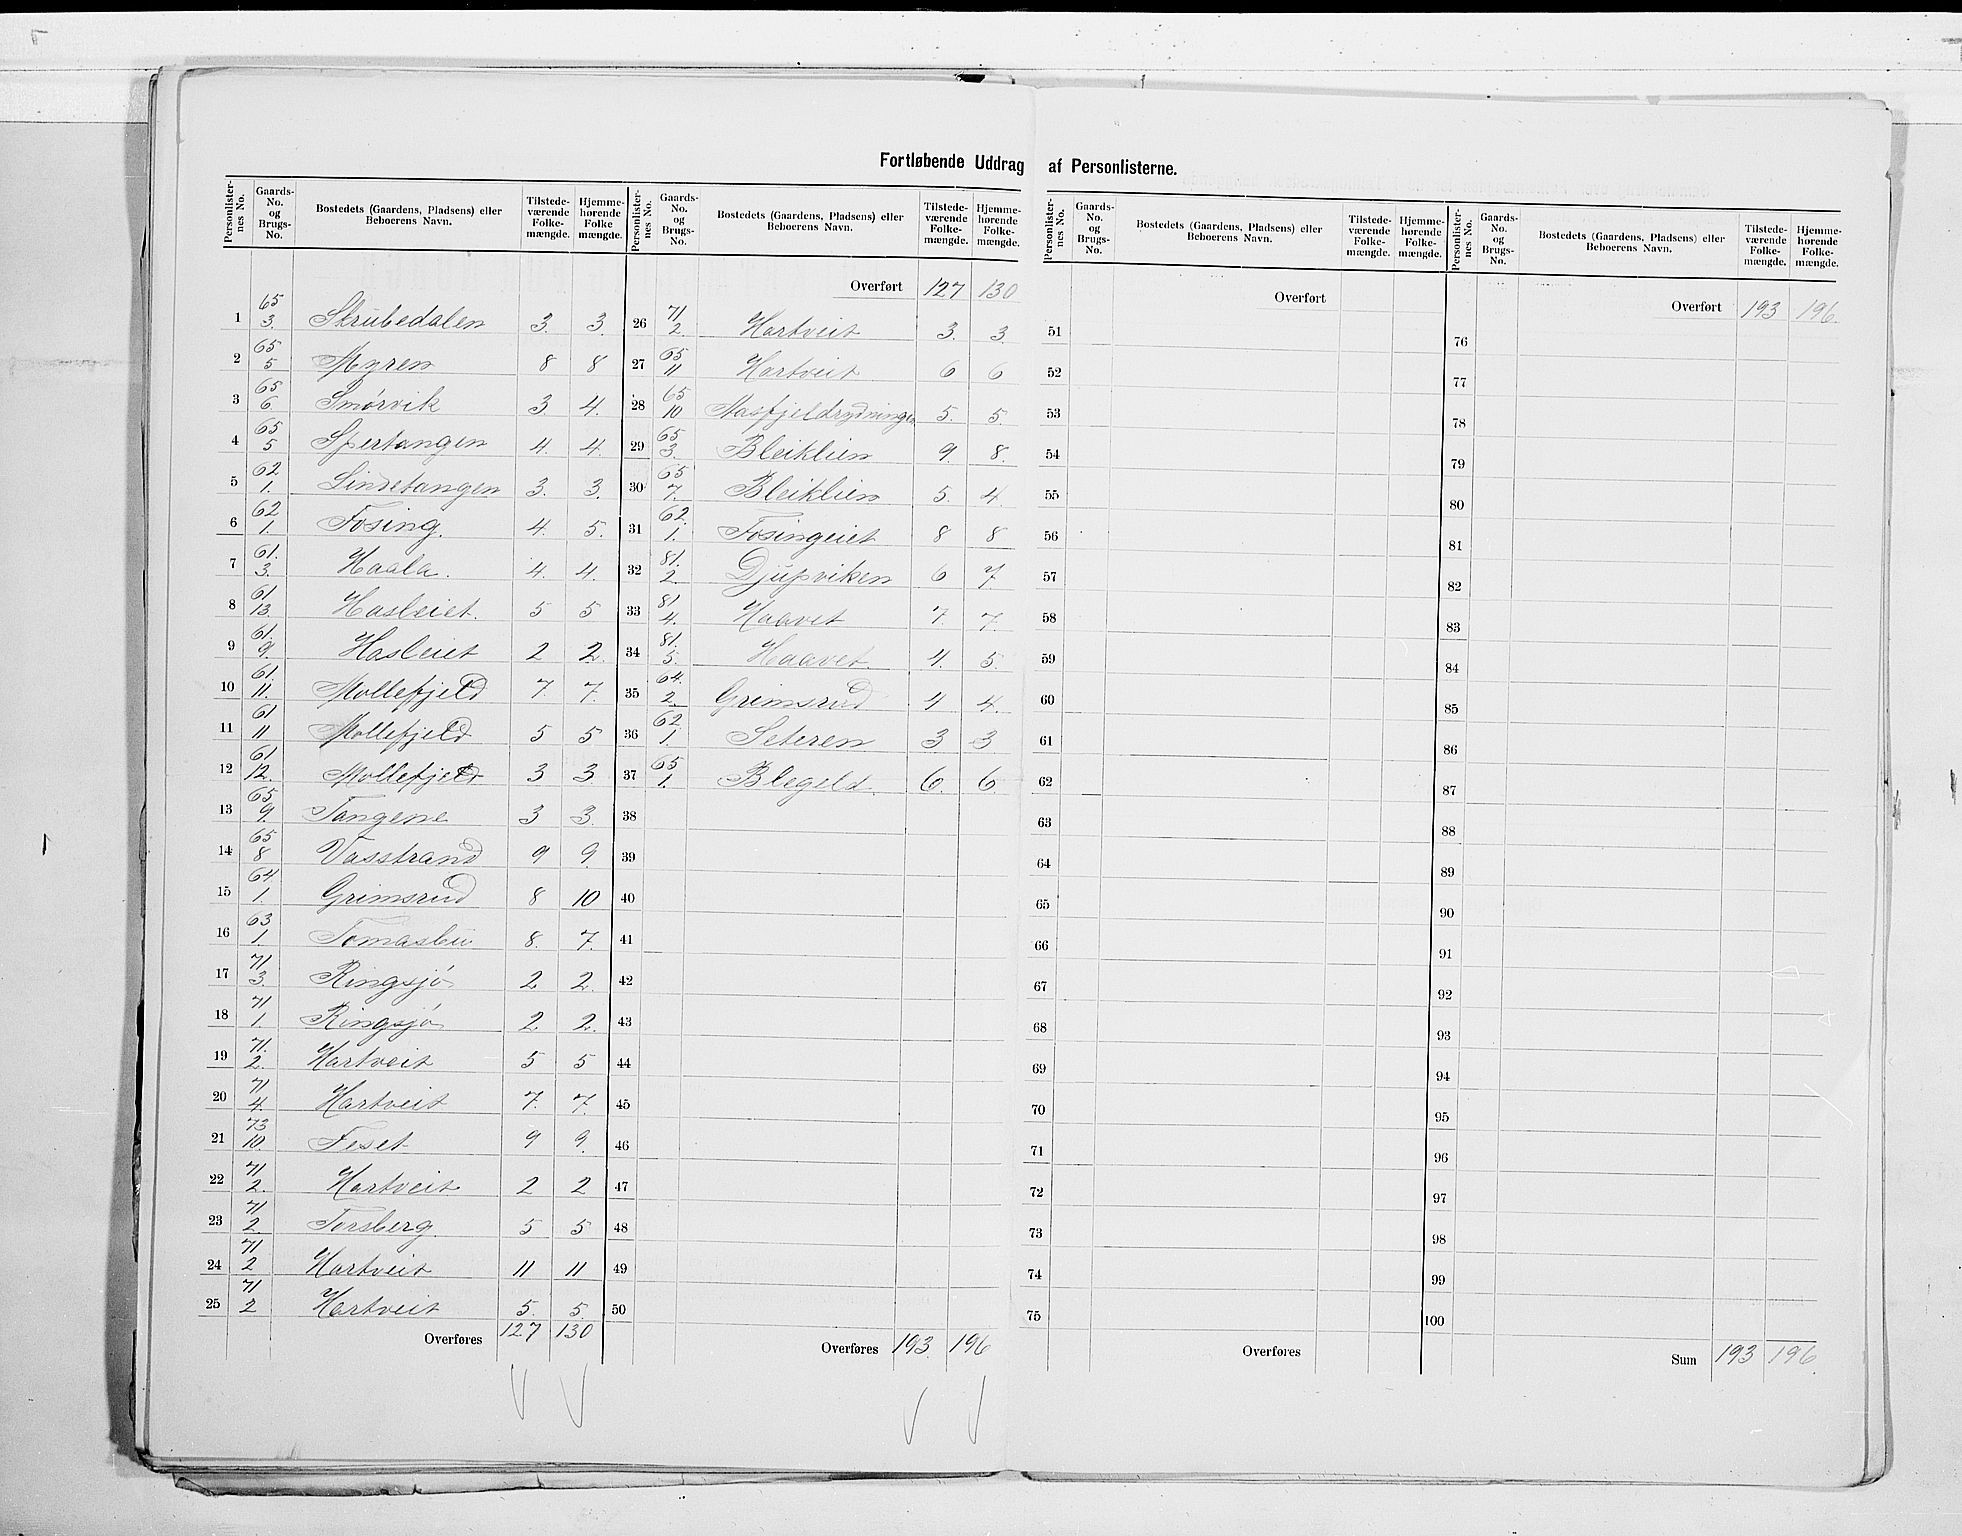 Fortløbende Uddrag af Personlisterne.
Personlisternes No. | Gaards-No. og Brugs-No. | Bostedets (Gaardens, Pladsens) eller Beboerens Navn. | Tilstedeværende Folkemængde. | Hjemmehørende Folkemængde.
1 65/3. Skrubedalen 3. 3.
2 65/5 Myren 8 8
3 65/6. Smörvik 3 4.
4 65/5 Spertangen 4. 4.
5 62/1. Lindetangen 3. 3.
6 62/1. Fosing. 4. 5.
7 61./3. Haala. 4. 4.
8 61/13. Hasleiet. 5 5
9 61./9. Hasleiet 2 2.
10 61./11. Mollefjeld 7. 7.
11 61/11 Mollefjeld 5 5
12 61/12. Mollefjeld 3 3
13 65./9. Tangene 3 3.
14 65/8 Vasstrand 9 9.
15 64./1. Grimsrud 8 10
16 63/1. Tomasbu 8. 7.
17 71/3. Ringsjö 2 2.
18 71/1. Ringsjö 2. 2.
19 71./2. Hartveit 5 5
20 71/4. Hartveit 7. 7.
21 73/10. Feset 9 9.
22 71/2. Hartveit 2 2
23 71/2. Torsberg. 5 5
24 71/2 Hartveit 11 11
25 71/2 Hartveit 5. 5.
Overføres 127 130
Overført 127 130
26 71/2. Hartveit 3. 3.
27 65/11 Hartveit 6 6
28 65/10 Aasfjeldrydningen 5. 5.
29 65/3. Bleiklien 9. 8.
30 65/7. Bleiklien 5. 4.
31 62./1. Fosingeiet 8 8
32 81./2. Djupviken 6 7
33 81/4. Haavet 7. 7.
34 81./5. Haavet. 4. 5.
35 64./2. Grimsrud 4 4.
36 62/1. Seteren 3 3
37 65/1. Blegeld. 6. 6.
38
39
40
41
42
43
44
45
46
47
48
49
50
Overføres 193. 196
Personlisternes No. | Gaards-No. og Brugs-No. | Bostedets (Gaardens, Pladsens) eller Beboerens Navn. | Tilstedeværende Folkemængde. | Hjemmehørende Folkemængde.
Overført
51
52
53
54
55
56
57
58
59
60
61
62
63
64
65
66
67
68
69
70
71
72
73
74
75
Overføres
Overført 193 196.
76
77
78
79
80
81
82
83
84
85
86
87
88
89
90
91
92
93
94
95
96
97
98
99
100
Sum 193 196.